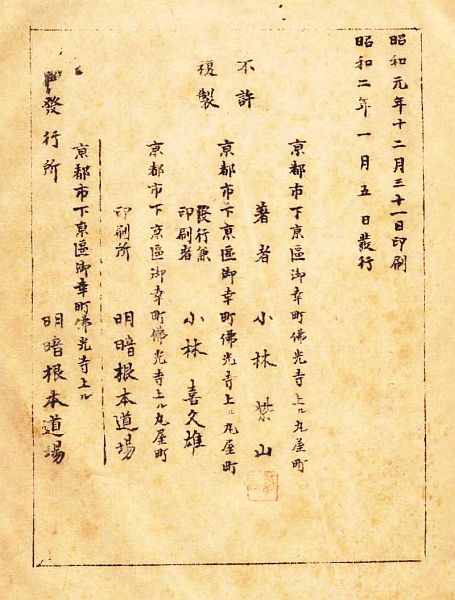 昭和元年十二月三十一日印刷
昭和二年一月五日發行
不許
複製
京都市下京區御幸町佛光寺上ル丸屋町
著者 小林紫山
京都市下京區御幸町佛光寺上ル丸屋町
發行兼
印刷者 小林喜久雄
京都市下京區御幸町佛光寺上ル丸屋町
印刷所 明暗根本道場
京都市下京區御幸町佛光寺上ル
發行所 明暗根本道場